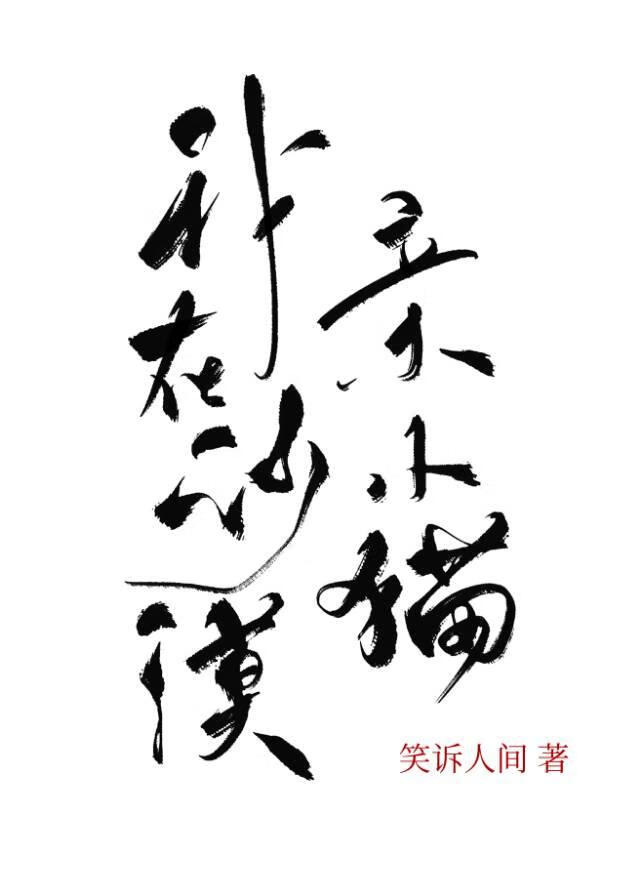 神在沙漠
亲小猫
笑诉人间 著